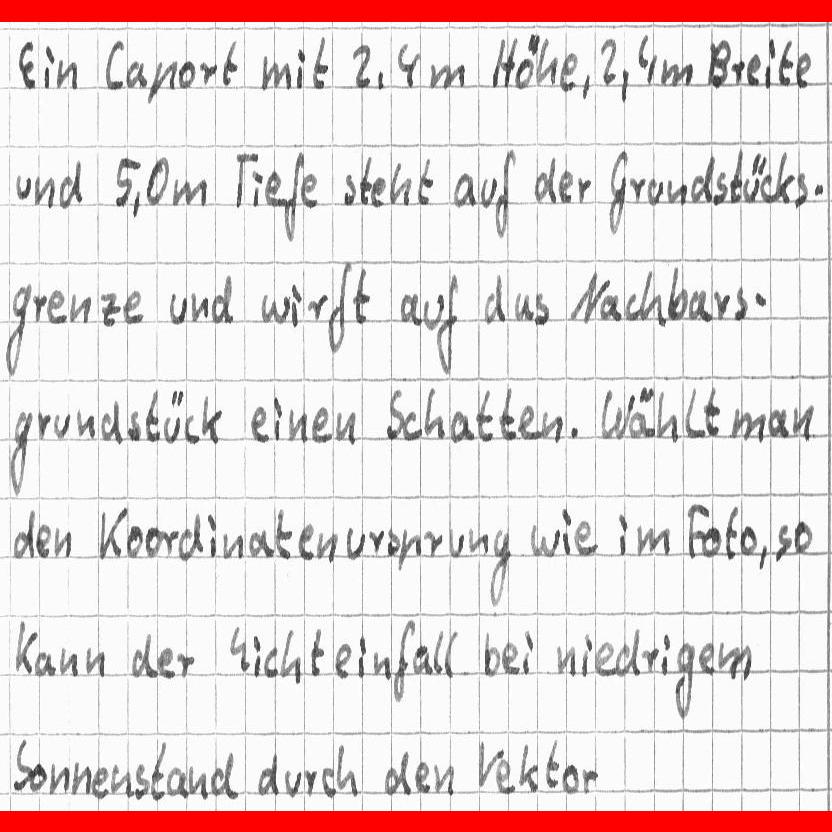 Ein Caport mit 2.4m Höhe, 2,4m Breite
und 5,0m Tiefe steht auf der Grundstücks-
grenze und wirft auf das Nachbars-
grundstück einen Schatten. Wählt man
den Koordinatenursprung wie im Foto, so
kann der Lichteinfall bei niedrigem
Sonnenstand durch den Vektor